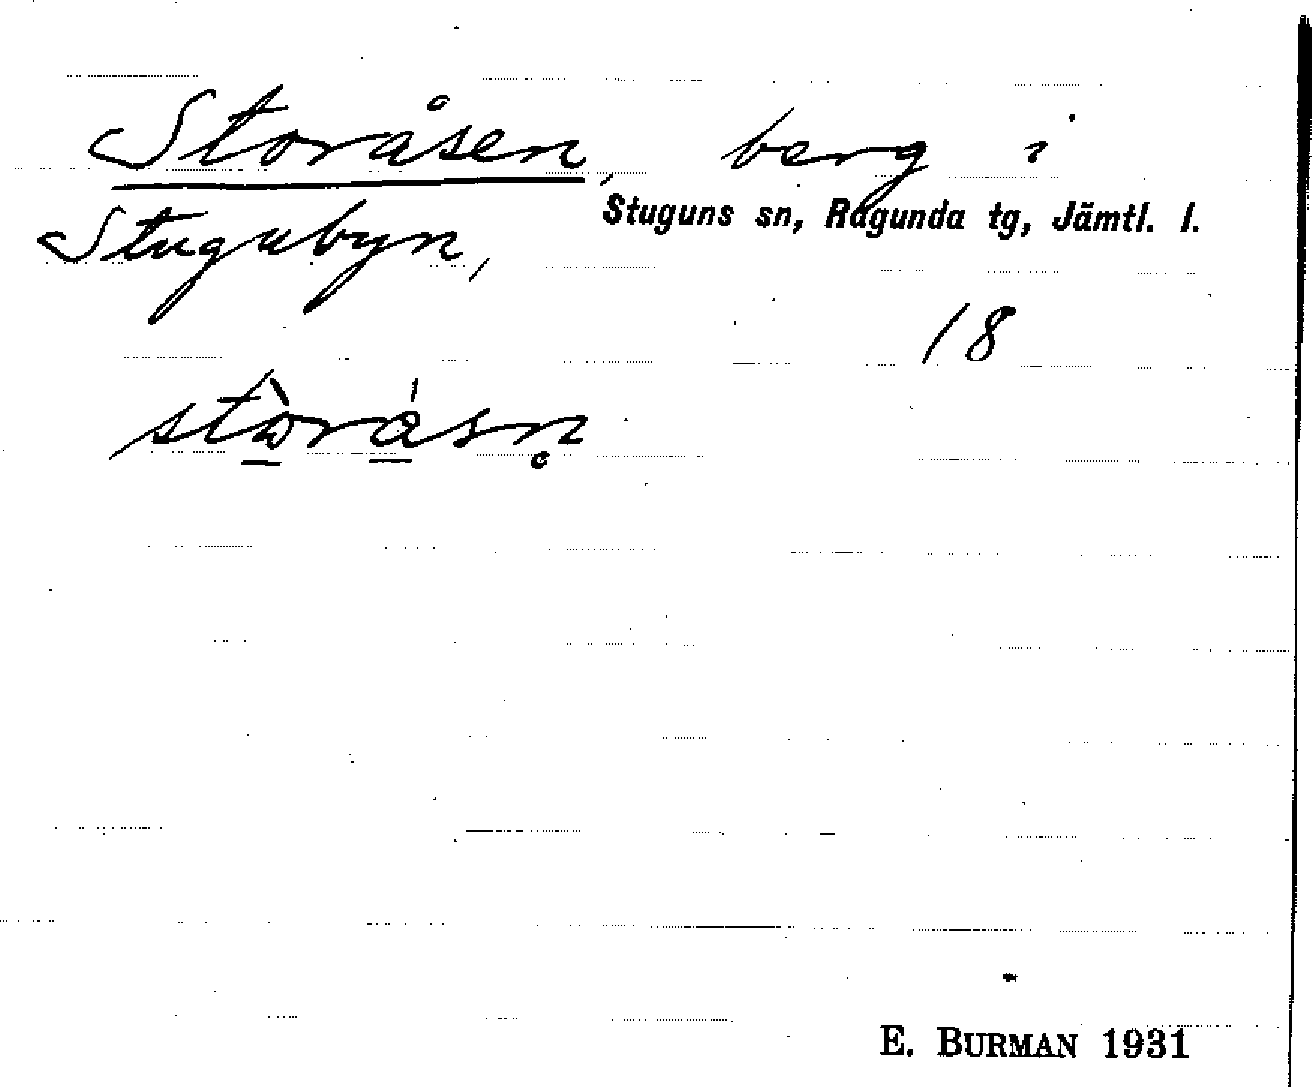 Storåsen, berg i
Stuguns sn, Ragunda tg, Jämtl. l.
Stugubyn,
18
E. BURMAN 1931